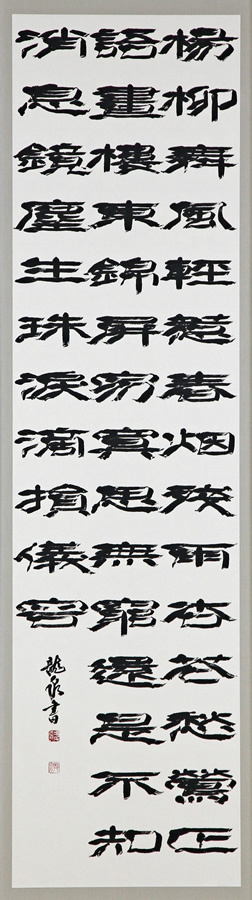 楊柳舞風輕惹春烟殘雨杏花愁鶯正
語畫樓東錦屏寂寞思無窮還是不知
消息鏡塵生珠淚滴損儀容
龍泉書